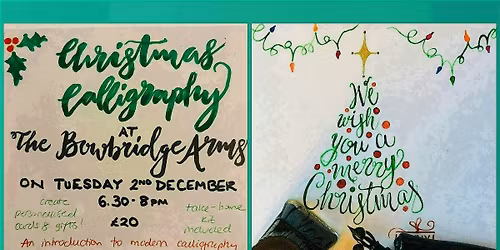 Christmas
Calligraphy
AT
The Bowbridge Arms
ON TUESDAY 2ND DECEMBER
6.30-8PM
£20
create
personalised
cards & gifts!
take-home
kit
included
An introduction to modern calligraphy
We
wish
you a
merry
Christmas